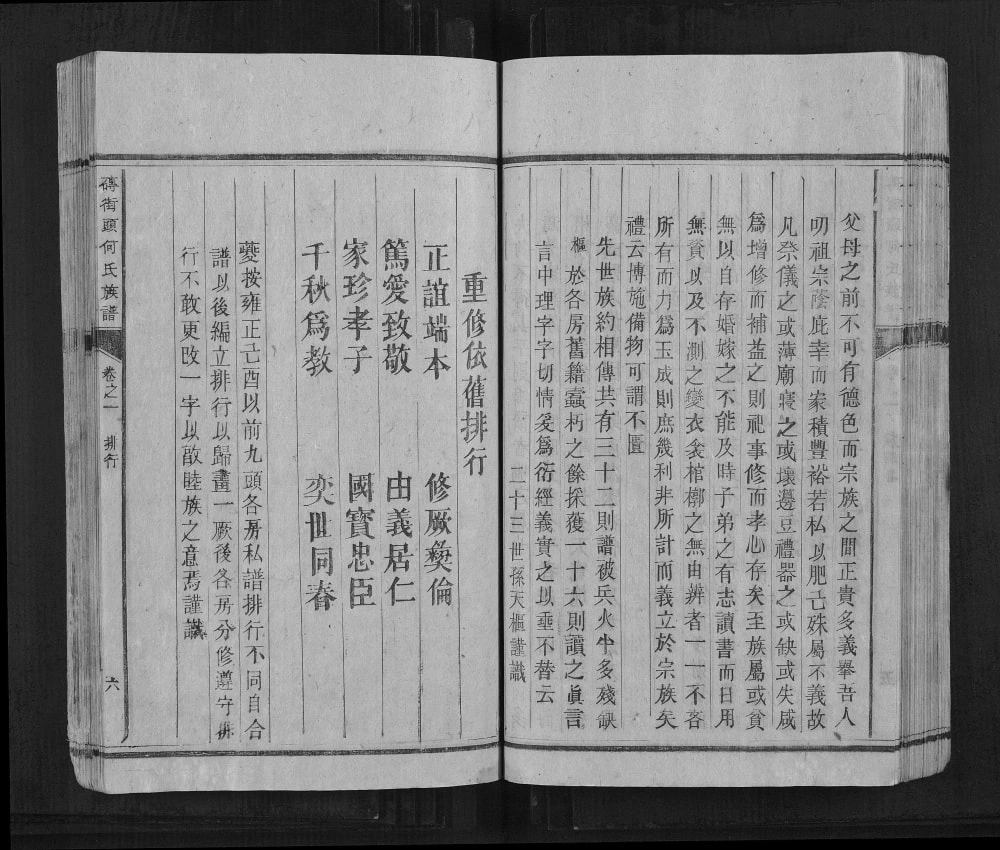 父母之前不可有德色而宗族之間正貴多義舉吾人
叨祖宗蔭庇幸而家積豐裕若私以肥己殊屬不義故
凡祭儀之或薄廟寢之或壞邊豆禮器之或缺或失咸
爲增修而補益之則祀事修而孝心存矣至族屬或貧
無以自存婚嫁之不能及時子弟之有志讀書而日用
無資以及不測之變衣衾棺槨之無由辨者一一不吝
所有而力爲玉成則庶幾利非所計而義立於宗族矣
禮云博施備物可謂不匱
先世族約相傳共有三十二則譜被兵火中多殘缺
樞於各房舊籍蠹朽之餘採獲一十六則讀之眞言
言中理字字切情爰爲衍經義實之以垂不替云
二十三世孫天樞謹識
重修依舊排行
正誼端本 修厥彜倫
篤愛致敬 由義居仁
家珍孝子 國寶忠臣
千秋爲教 奕世同春
夔按雍正己酉以前九頭各房私譜排行不同自合
譜以後編立排行以歸畫一厥後各房分修遵守排
行不敢更改一字以敵睦族之意焉謹識
磚街頭何氏族譜
卷之一 排行
六